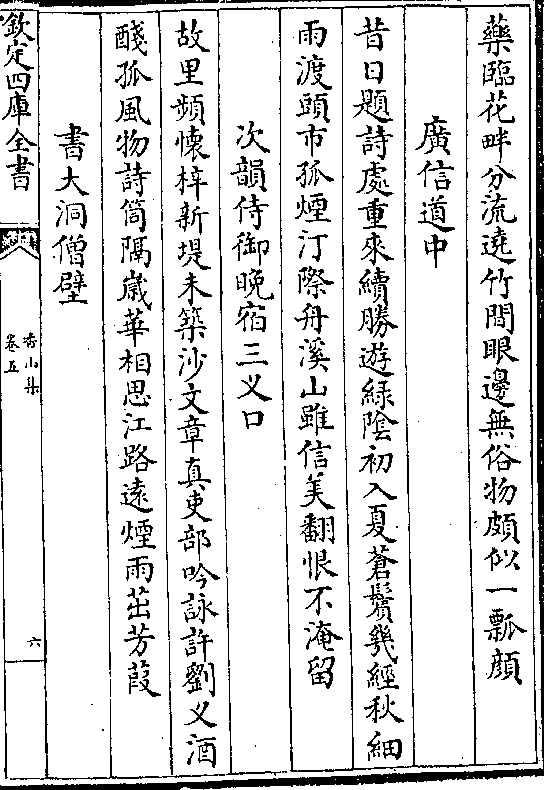 藥臨花畔分流遶竹間眼邊無俗物頗似一瓢顔
廣信道中
昔日題詩處重來續勝遊綠陰初入夏蒼鬢幾經秋細
雨渡頭市孤煙汀際舟溪山雖信美翻恨不淹留
次韻侍御晚宿三义口
故里頻懐梓新堤未築沙文章真吏部吟詠許劉义酒
醆孤風物詩筒隔嵗華相思江路逺煙雨茁芳葭
書大洞僧壁
欽定四庫全書
香山集
卷五
六